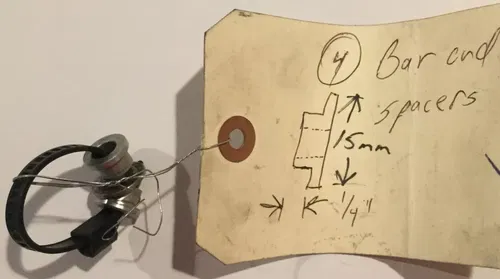 4 Bar end
spacers
15mm
1/4"